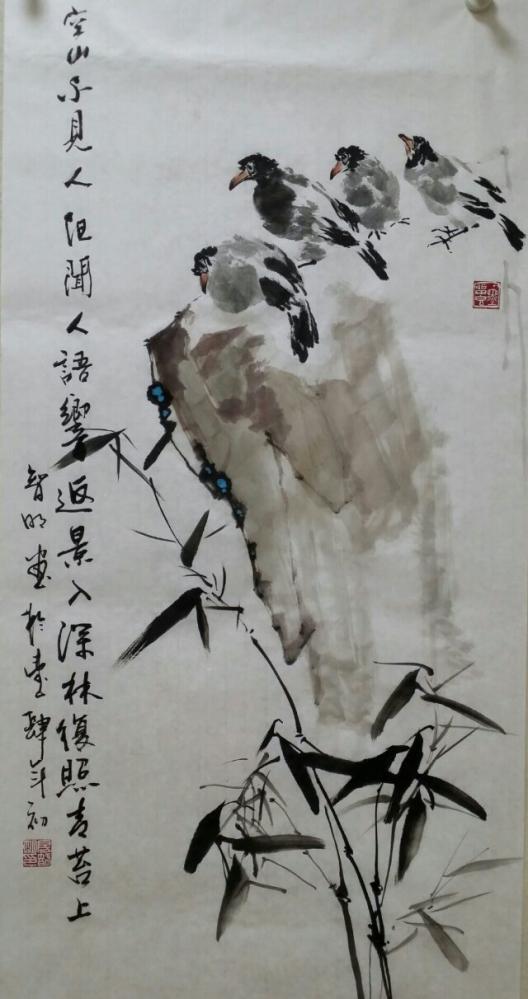 空山不見人但聞人語響返景入深林復照青苔上
智明畫於壹肆年初